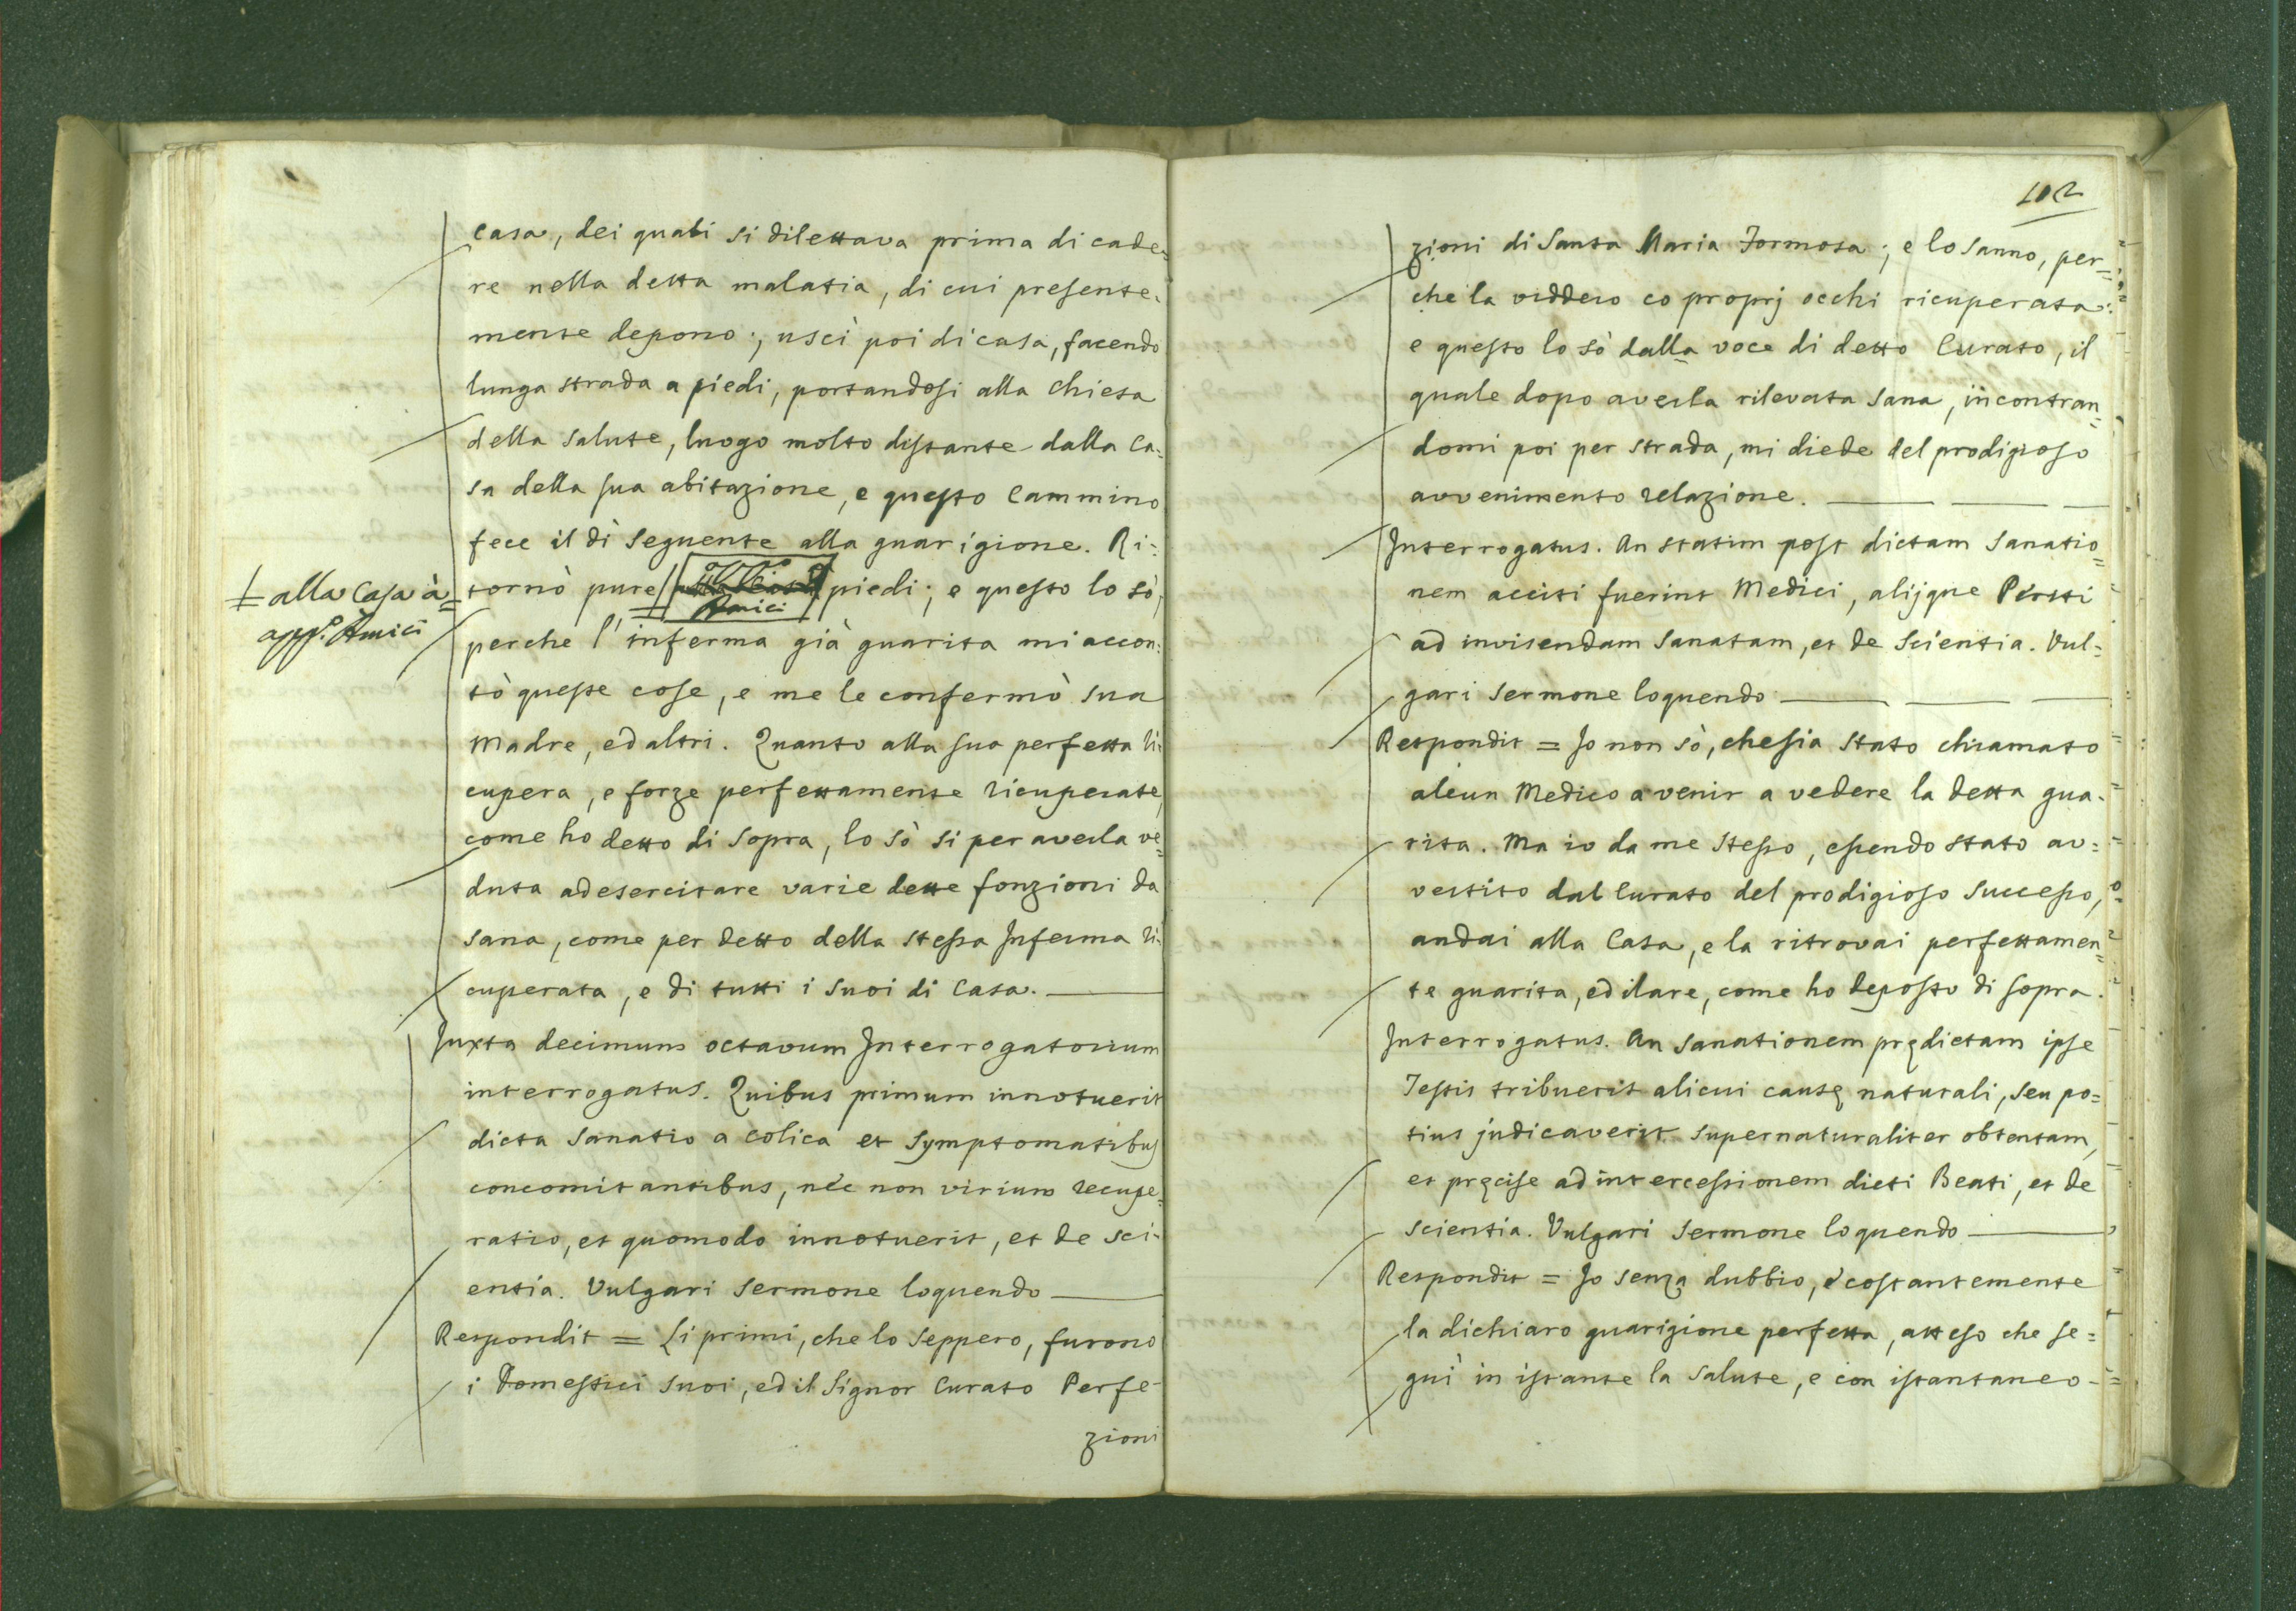 casa, dei quali si dilettava prima di cade=
re nella detta malatia, di cui presente=
mente depono; uscì poi di casa, facendo
lunga strada a piedi, portandosi alla Chiesa
della Salute, luogo molto distante dalla Ca=
sa della sua abitazione, e questo Cammino
fece il dì seguente alla guarigione. Ri=
tornò pure piedi; e questo lo sò,
Amici
alla Casa à
app.º Amici
perche l'inferma già guarita mi accon=
tò queste cose, e me le confermò sua
Madre, ed altri. Quanto alla sua perfetta ri=
cupera, e forze perfettamente ricuperate,
come ho detto di sopra, lo sò si per averla ve=
duta ad esercitare varie dette fonzioni da
sana, come per detto della stessa Inferma ri=
cuperata, e di tutti i suoi di Casa.
Juxta decimum octavum Interrogatorium
interrogatus. Quibus primum innotuerit
dicta Sanatio a colica et symptomatibus
concomitantibus, nec non virium recupe=
ratio, et quomodo innotuerit, et de sci=
entia. Vulgari sermone loquendo
Respondit = Li primi, che lo seppero, furono
i Domestici suoi, ed il Signor Curato Perfe=
zioni
102
zioni di Santa Maria Formosa; e lo sanno, per=
che la viddero co proprj occhi ricuperata:
e questo lo sò dalla voce di detto Curato, il
quale dopo averla rilevata sana, incontran=
domi poi per strada, mi diede del prodigioso
avvenimento relazione.
Interrogatus. An statim post dictam Sanatio=
nem acciti fuerint Medici, alijque Periti
ad invisendam Sanatam, et de Scientia. Vul=
gari sermone loquendo
Respondit = Io non sò, che sia stato chiamato
alcun Medico a venir a vedere la detta gua=
rita. Ma io da me stesso, essendo stato av=
vertito dal Curato del prodigioso successo,
andai alla Casa, e la ritrovai perfettamen=
te guarita, ed ilare, come ho deposto di sopra.
Interrogatus. An Sanationem prędictam ipse
Testis tribuerit alicui causę naturali, seu po=
tius judicaverit supernaturaliter obtentam,
et pręcise ad intercessionem dicti Beati, et de
scientia. Vulgari sermone loquendo
Respondit = Io senza dubbio, e costantemente
la dichiaro guarigione perfetta, atteso che se=
guì in istante la salute, e con istantaneo=